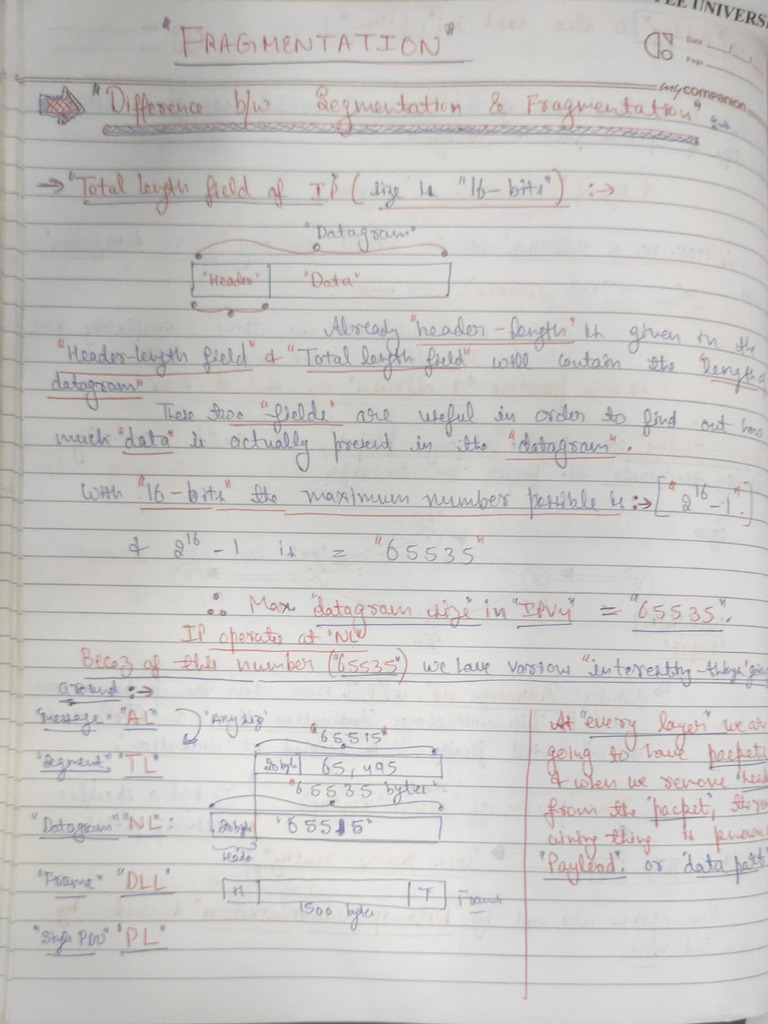 "FRAGMENTATION"
UNIVERS
Date
Page
mycompanion
"Difference b/w Segmentation & Fragmentation" :→
→ "Total length field of IP (size is "16-bits") :→
"Datagram"
"Header" "Data"
Already "header-length" is given in the
"Header-length field" & "Total length field" will contain the "length of
datagram"
These two "fields" are useful in order to find out how
much "data" is actually present in the "datagram".
With "16-bits" the maximum number possible is :→ ["2^16-1".]
& 2^16-1 is = "65535"
∴ Max "datagram size" in "IPV4" = "65535".
IP operates at "NL"
Becoz of this number ("65535") we have various "interesting-things"
around :→
"Message" "AL" "Any size"
"65515"
"Segment" "TL" 20 byte 65,495
"65535 bytes"
"Datagram" "NL": 20 byte "65515"
"Frame" "DLL" H T Frame
1500 bytes
PDU" "PL"
At "every layer" we are
going to have packets
& when we remove
from the "packet", the
thing is
"Payload" or "data part"